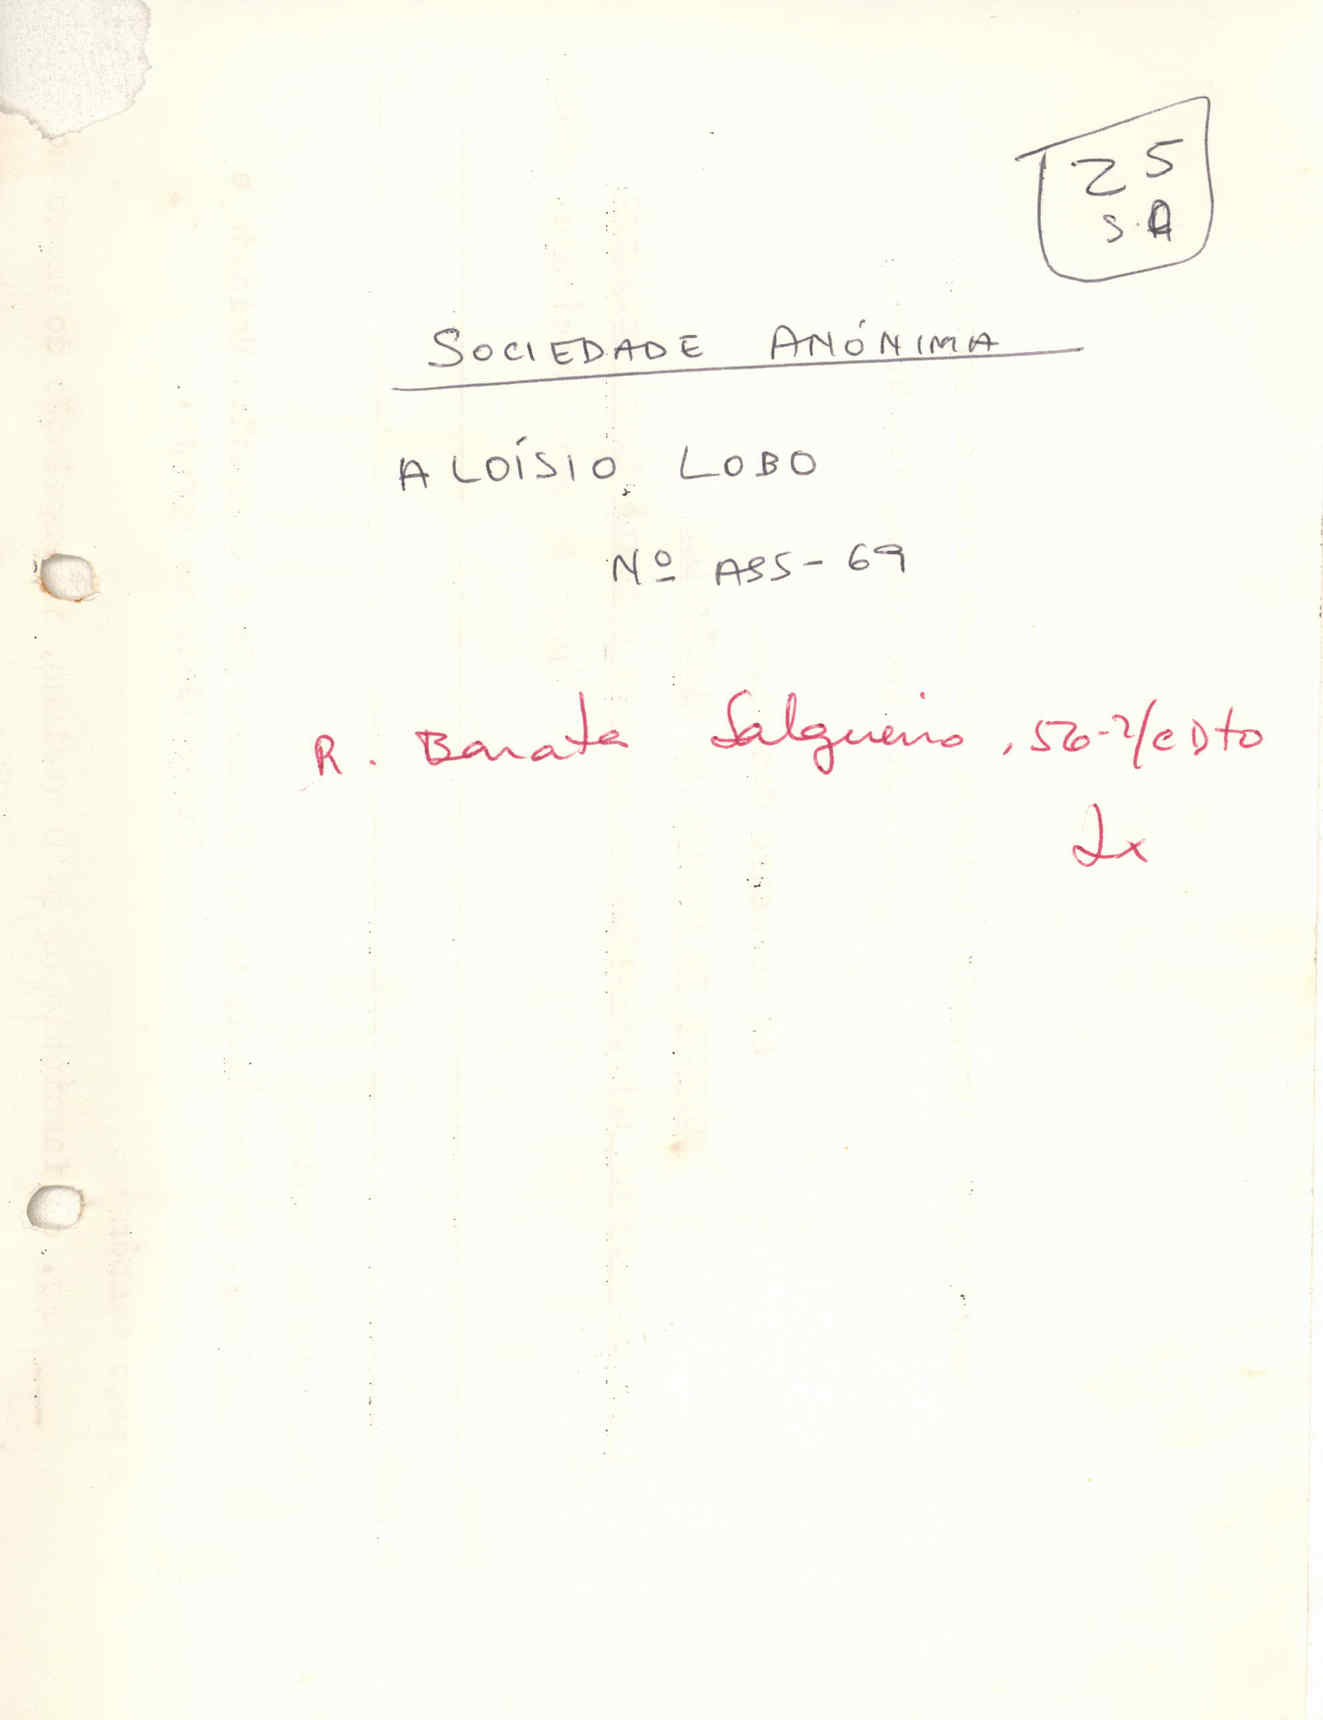 25
S.A
SOCIEDADE ANÓNIMA
ALOÍSIO LOBO
Nº ASS-69
R. Barata Salgueiro, 56-r/c Dto
Lx